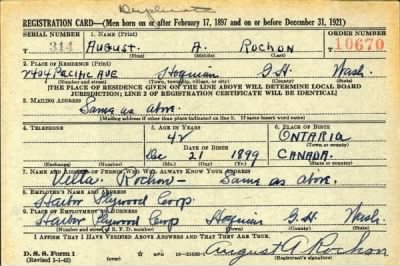 Duplicate
REGISTRATION CARD—(Men born on or after February 17, 1897 and on or before December 31, 1921)
SERIAL NUMBER 1. NAME (Print) ORDER NUMBER
T 314 August. A. Rochon 10670
(First) (Middle) (Last)
2. PLACE OF RESIDENCE (Print)
2404 Pacific Ave Hoquiam G.H. Wash.
(Number and street) (Town, township, village, or city) (County) (State)
[THE PLACE OF RESIDENCE GIVEN ON THE LINE ABOVE WILL DETERMINE LOCAL BOARD
JURISDICTION; LINE 2 OF REGISTRATION CERTIFICATE WILL BE IDENTICAL]
3. MAILING ADDRESS
Same as above.
[Mailing address if other than place indicated on line 2. If same insert word same]
4. TELEPHONE 5. AGE IN YEARS 6. PLACE OF BIRTH
42 Ontario
DATE OF BIRTH (Town or county)
Dec 21 1899 Canada.
(Exchange) (Number) (Mo.) (Day) (Yr.) (State or country)
7. NAME AND ADDRESS OF PERSON WHO WILL ALWAYS KNOW YOUR ADDRESS
Rochon — Same as above.
8. EMPLOYER'S NAME AND ADDRESS
Harbor Plywood Corp.
9. PLACE OF EMPLOYMENT OR BUSINESS
Harbor Plywood Corp Hoquiam G.H. Wash.
(Number and street or R. F. D. number) (Town) (County) (State)
I AFFIRM THAT I HAVE VERIFIED ABOVE ANSWERS AND THAT THEY ARE TRUE.
D. S. S. Form 1
(Revised 1-1-42) (over) August A Rochon